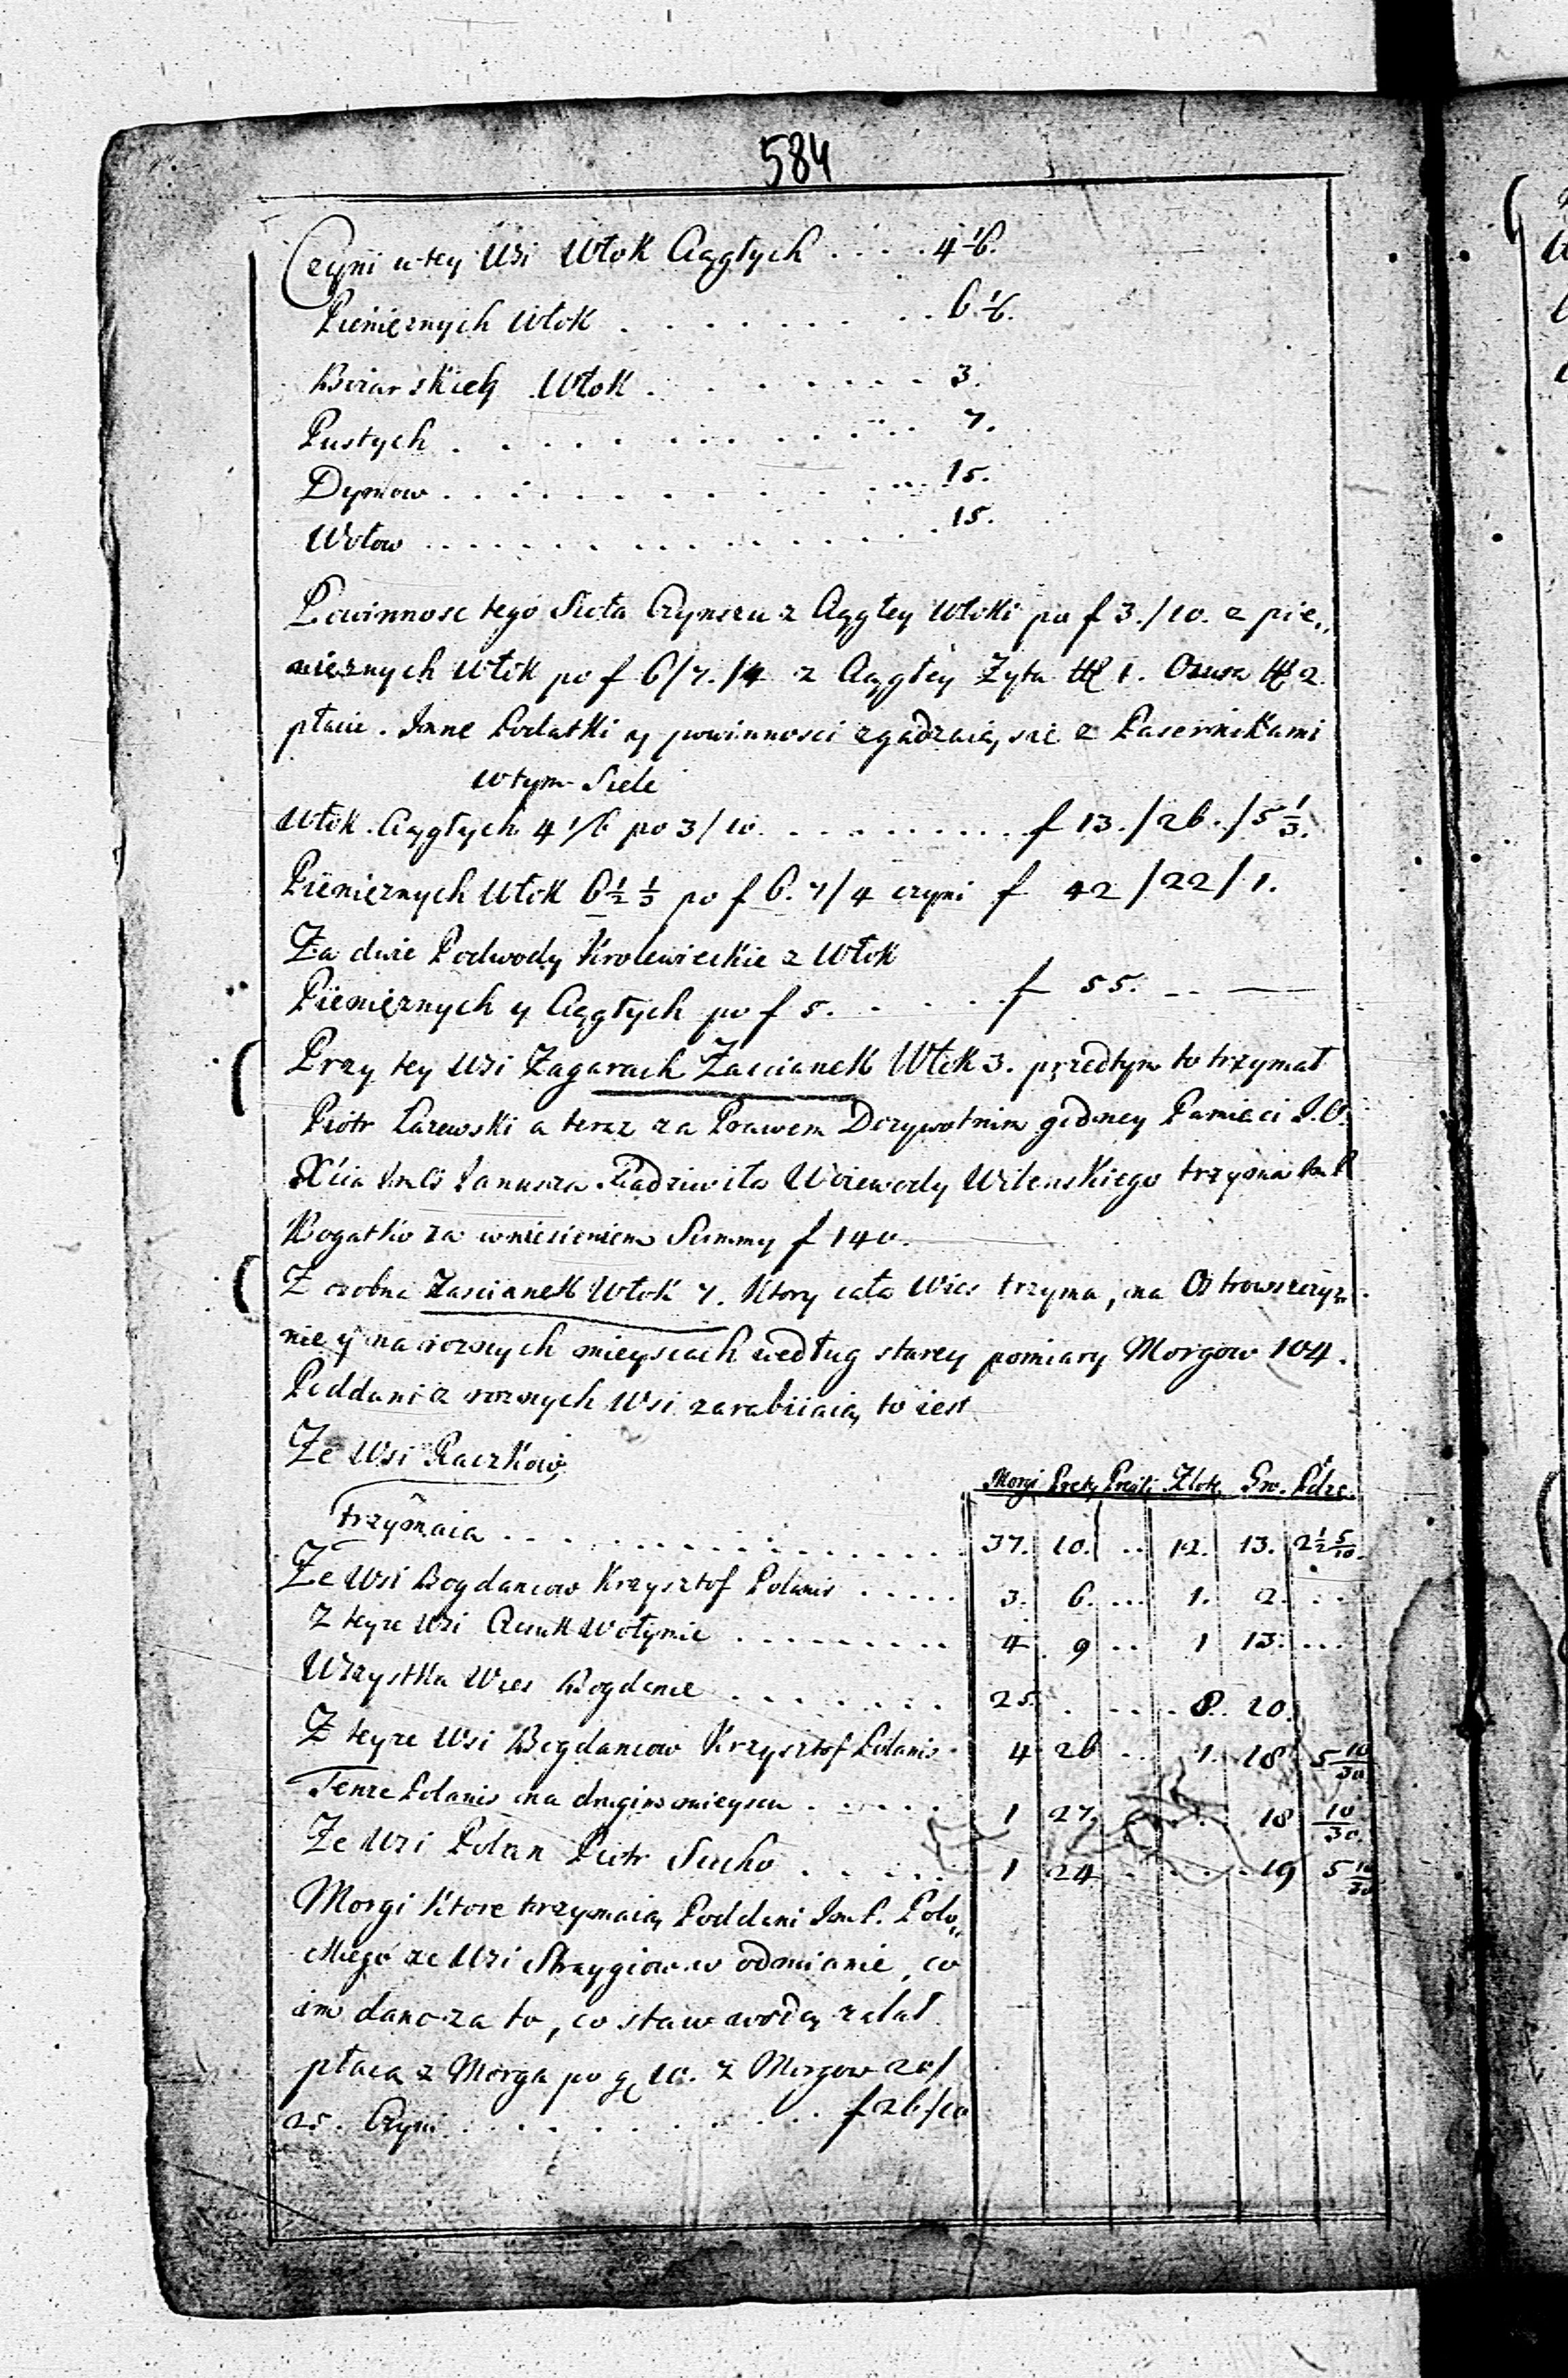 584
Czyni w tey Wsi Włok Ciągłych . . . . 4 1/6.
Pieniężnych Włok . . . . . . . . 6 1/6.
Boiarskich Włok . . . . . . . 3.
Pustych . . . . . . . . . . . 7.
Dymow . . . . . . . . . . . 15.
Wołow . . . . . . . . . . . . 15.
Powinnosc tego Sioła Czynszu z Ciągłey Włoki po f 3./10. z pie„
niężnych Włok po f 6/7./4 z Ciągłey Żyta 1. Owsa 2
płacie. Inne Podatki y powinnosci zgadzaią się z Pasernikami
w tym Siele
Włok Ciągłych 4 1/6 po 3/10. . . . . . . . . . f 13./26./5 1/3.
Pieniężnych Włok 6 1/2 1/3 po f 6. 7/4 czyni f 42/22/1.
Za dwie Podwody Krolewieckie z Włok
Pieniężnych y Ciągłych po f 5. . . . . f 55. — —
Przy tey Wsi Zagarach Zascianek Włok 3. przedtym to trzymał
Piotr Łazewski a teraz za Prawem Dozywotnim godney Pamieci J.O.
Xcia Imści Janusza Radziwiła Woiewody Wilenskiego trzyma Im P
Bogatko za wniesieniem Summy f 140.
Z osobna Zascianek Włok 7. Ktory cała Wies trzyma, na Ostrowszczyz„
nie y na roznych mieyscach według starey pomiary Morgow 104.
Poddani z roznych Wsi zarabiiaią to iest
Ze Wsi Raczkow
Morgi Pręty Pręciki Złote Gr. Pdze.
Trzymaia . . . . . . . . . . . 37. 10. .. 12. 13. 2 1/2 5/10.
Ze Wsi Bogdancow Krzysztof Polanis . . . . . 3. 6. ... 1. 2. ...
Z teyze Wsi Wołynie . . . . . . . . . 4 9 .. 1 13. ...
Wszystka Wies Bogdance . . . . . . . 25. . ... 8. 20.
Z teyze Wsi Bogdancow Krzysztof Polanis . 4 26 .. 1. 18 5 10/30
Tenze Polanis na drugim mieyscu . . . . . 1 27 . . 18 10/30
Ze Wsi Polan Piotr Sucho . . . . . 1 24 . . . 19 5 10/30
Morgi Ktore trzymaią Poddani Im P. Poło„
ckiego ze Wsi Strzygiow w odmianie, co
im dano za to, co staw wodą zalał
płacą z Morga po g 10. z Morgow 20/
25. Czyni . . . . . . . . . f 26/10